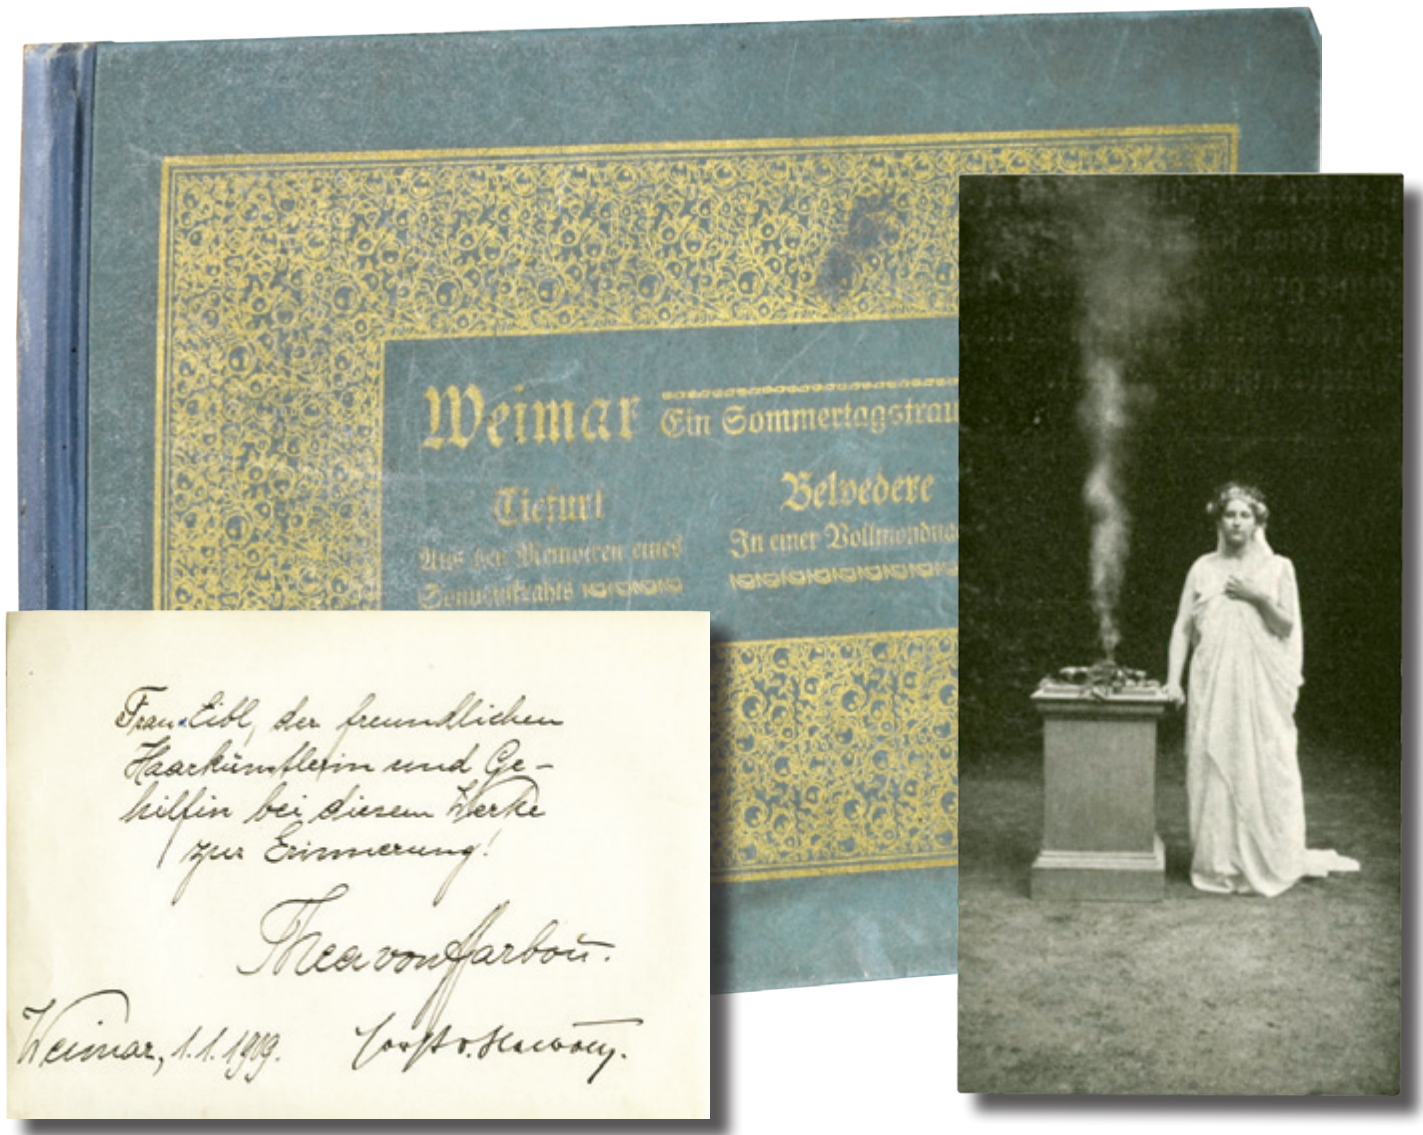 Weimar Ein Sommertagstrau
Tiefurt
Belvedere
Aus den Memoiren eines
Sonnenstrahls
In einer Vollmondna
Frau Eibl, der freundlichen
Haarkünstlerin und Ge-
hilfin bei diesem Werke
zur Erinnerung!
Thea von Harbou.
Weimar, 1.1.1909.